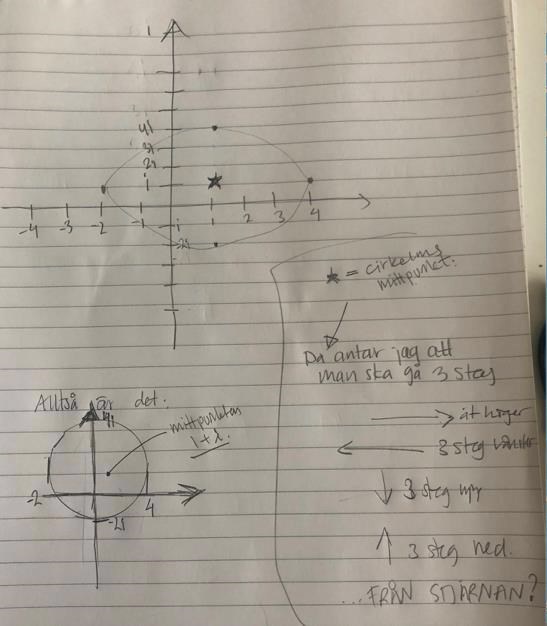 4i
3i
2i
i
-4 -3 -2 -1 2 3 4
-i
-2i
★ = cirkelns
mittpunkt.
Då antar jag att
man ska gå 3 steg
→ åt höger
← 3 steg vänster
↓ 3 steg upp
↑ 3 steg ned.
...FRÅN STJÄRNAN?
Alltså är det:
4i
mittpunkten
1+i.
-2 4
-2i